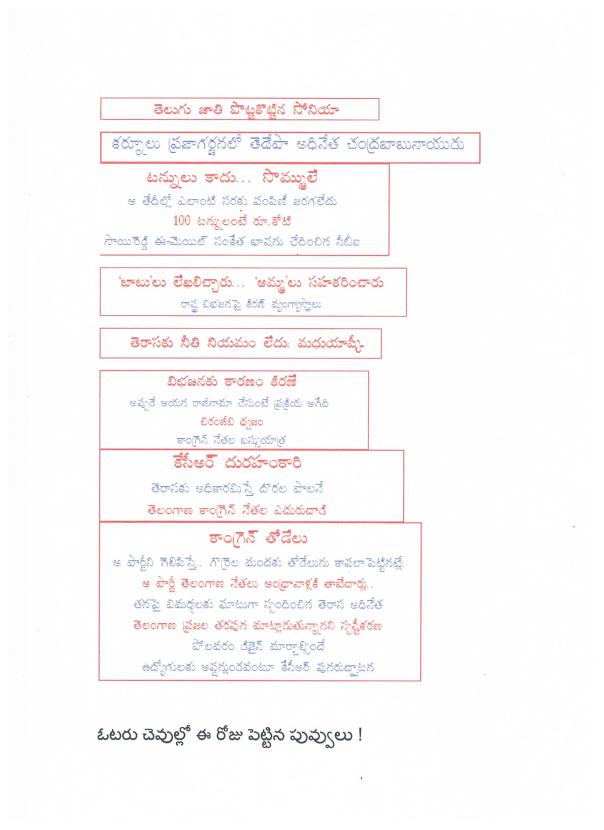 తెలుగు జాతి పొట్టకొట్టిన సోనియా
కర్నూలు ప్రజాగర్జనలో తెదేపా అధినేత చంద్రబాబునాయుడు
టన్నులు కాదు... సొమ్ములే
ఆ తేదీల్లో ఎలాంటి సరకు పంపిణీ జరగలేదు
100 టన్నులంటే రూ.కోటి
సాయిరెడ్డి ఈ-మెయిల్ సంకేత భాషను ఛేదించిన సీబీఐ
'బాబు'లు లేఖలిచ్చారు... 'అమ్మ'లు సహకరించారు
రాష్ట్ర విభజనపై కిరణ్ వ్యంగ్యాస్త్రాలు
తెరాసకు నీతి నియమం లేదు: మధుయాష్కీ
విభజనకు కారణం కిరణే
అప్పుడే ఆయన రాజీనామా చేసుంటే ప్రక్రియ ఆగేది
చిరంజీవి ధ్వజం
కాంగ్రెస్ నేతల బస్సుయాత్ర
కేసీఆర్ దురహంకారి
తెరాసకు అధికారమిస్తే దొరల పాలనే
తెలంగాణ కాంగ్రెస్ నేతల ఎదురుదాడి
కాంగ్రెస్ తోడేలు
ఆ పార్టీని గెలిపిస్తే.. గొర్రెల మందకు తోడేలును కాపలా పెట్టినట్లే
ఆ పార్టీ తెలంగాణ నేతలు ఆంధ్రావాళ్లకి తాబేదార్లు..
తనపై విమర్శలకు ఘాటుగా స్పందించిన తెరాస అధినేత
తెలంగాణ ప్రజల తరఫున మాట్లాడుతున్నానని స్పష్టీకరణ
పోలవరం డిజైన్ మార్చాల్సిందే
ఉద్యోగులకు ఆప్షన్లుండవంటూ కేసీఆర్ పునరుద్ఘాటన
ఓటరు చెవుల్లో ఈ రోజు పెట్టిన పువ్వులు !